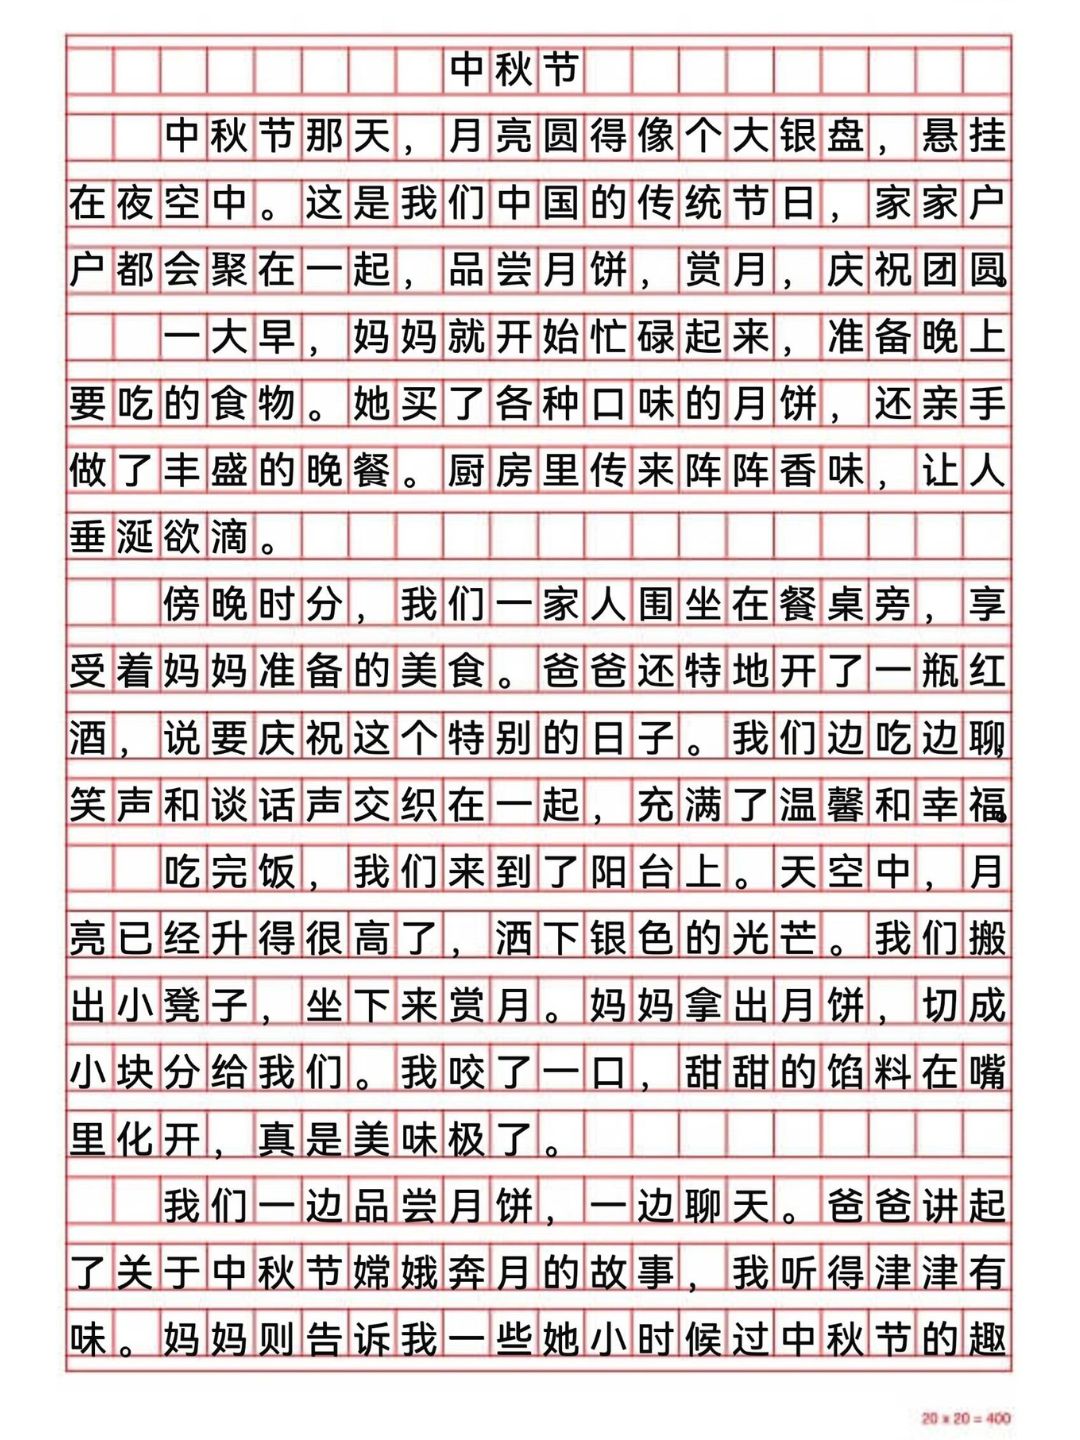 中秋节
中秋节那天，月亮圆得像个大银盘，悬挂
在夜空中。这是我们中国的传统节日，家家户
户都会聚在一起，品尝月饼，赏月，庆祝团圆。
一大早，妈妈就开始忙碌起来，准备晚上
要吃的食物。她买了各种口味的月饼，还亲手
做了丰盛的晚餐。厨房里传来阵阵香味，让人
垂涎欲滴。
傍晚时分，我们一家人围坐在餐桌旁，享
受着妈妈准备的美食。爸爸还特地开了一瓶红
酒，说要庆祝这个特别的日子。我们边吃边聊，
笑声和谈话声交织在一起，充满了温馨和幸福。
吃完饭，我们来到了阳台上。天空中，月
亮已经升得很高了，洒下银色的光芒。我们搬
出小凳子，坐下来赏月。妈妈拿出月饼，切成
小块分给我们。我咬了一口，甜甜的馅料在嘴
里化开，真是美味极了。
我们一边品尝月饼，一边聊天。爸爸讲起
了关于中秋节嫦娥奔月的故事，我听得津津有
味。妈妈则告诉我一些她小时候过中秋节的趣
20 x 20 = 400